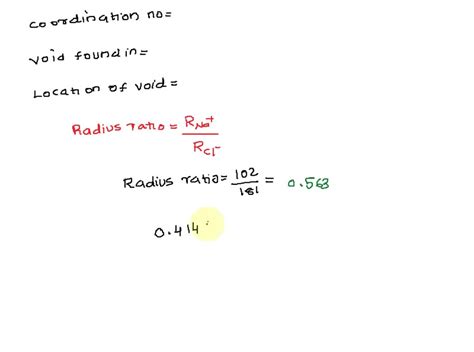 Coordination no=
Void found in=
Location of void=
Radius ratio = RNa+/RCl-
Radius ratio= 102/181 = 0.563
0.414